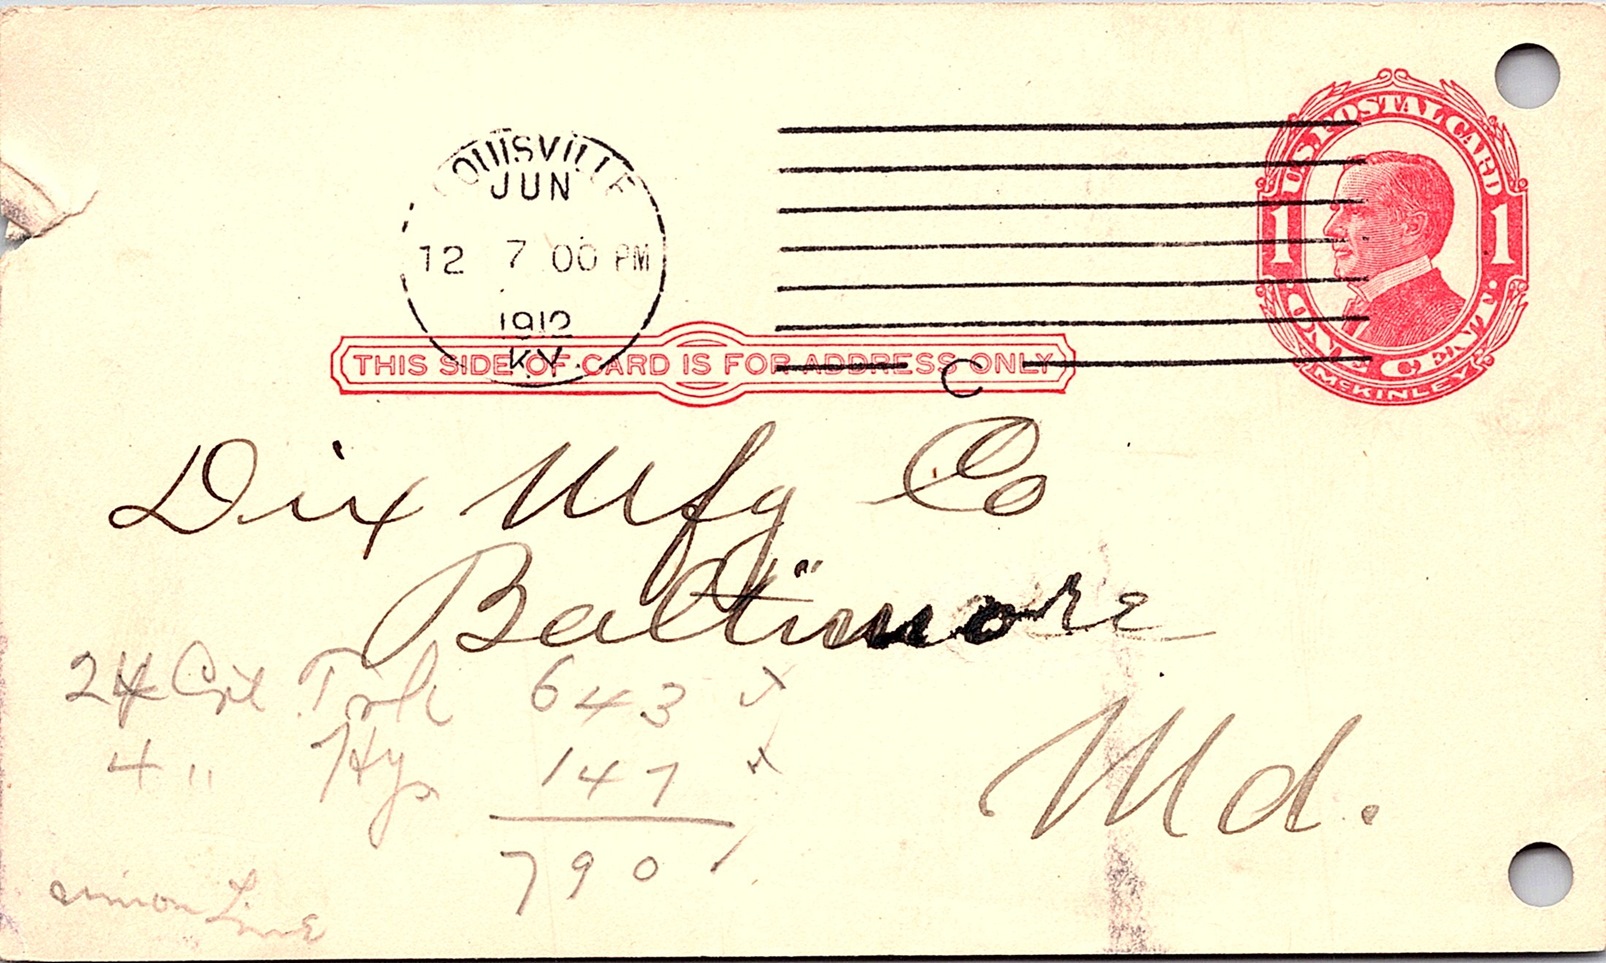 LOUISVILLE
JUN
12 7 00 PM
1912
KY.
U.S. POSTAL CARD
1 1
ONE CENT
McKINLEY
THIS SIDE OF CARD IS FOR ADDRESS ONLY
C
Dix Mfg Co
Baltimore
Md.
24 643
4 " 147
790
Line